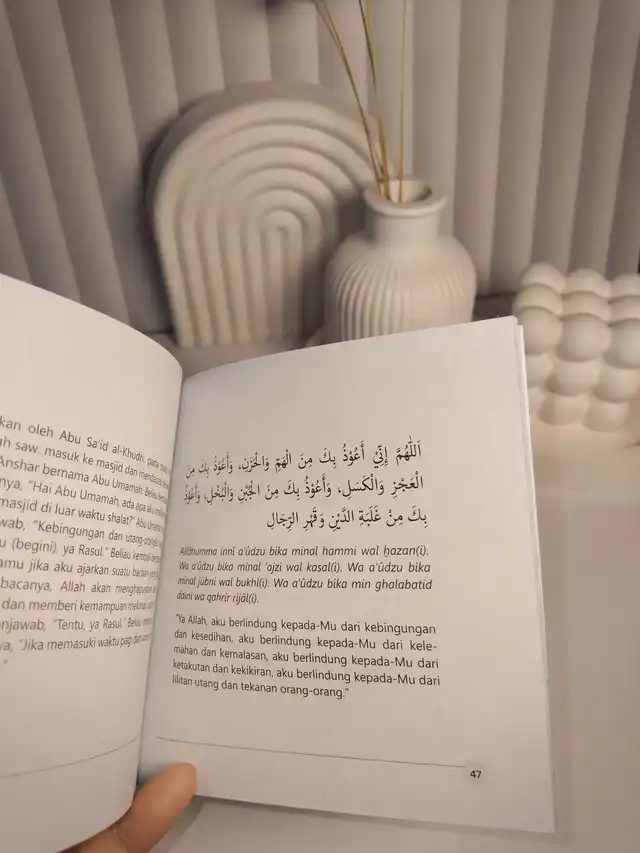 kan oleh Abu Sa'id al-Khudri, pada
ah saw. masuk ke masjid dan mendapati
Anshar bernama Abu Umamah. Beliau
nya, "Hai Abu Umamah, ada apa aku
masjid di luar waktu shalat?" Abu
wab, "Kebingungan dan utang-utang
u (begini), ya Rasul." Beliau kembali
amu jika aku ajarkan suatu bacaan
bacanya, Allah akan menghapuskan
dan memberi kemampuan melunasi
njawab, "Tentu, ya Rasul." Beliau
ya, "Jika memasuki waktu pagi dan
"
اَللّٰهُمَّ إِنِّيْ أَعُوْذُ بِكَ مِنَ الْهَمِّ وَالْحَزَنِ، وَأَعُوْذُ بِكَ مِنَ
الْعَجْزِ وَالْكَسَلِ، وَأَعُوْذُ بِكَ مِنَ الْجُبْنِ وَالْبُخْلِ، وَأَعُوْذُ
بِكَ مِنْ غَلَبَةِ الدَّيْنِ وَقَهْرِ الرِّجَالِ
Allâhumma innî a'ûdzu bika minal hammi wal ḫazan(i).
Wa a'ûdzu bika minal 'ajzi wal kasal(i). Wa a'ûdzu bika
minal jubni wal bukhl(i). Wa a'ûdzu bika min ghalabatid
daini wa qahrir rijâl(i).
"Ya Allah, aku berlindung kepada-Mu dari kebingungan
dan kesedihan, aku berlindung kepada-Mu dari kele-
mahan dan kemalasan, aku berlindung kepada-Mu dari
ketakutan dan kekikiran, aku berlindung kepada-Mu dari
lilitan utang dan tekanan orang-orang."
47